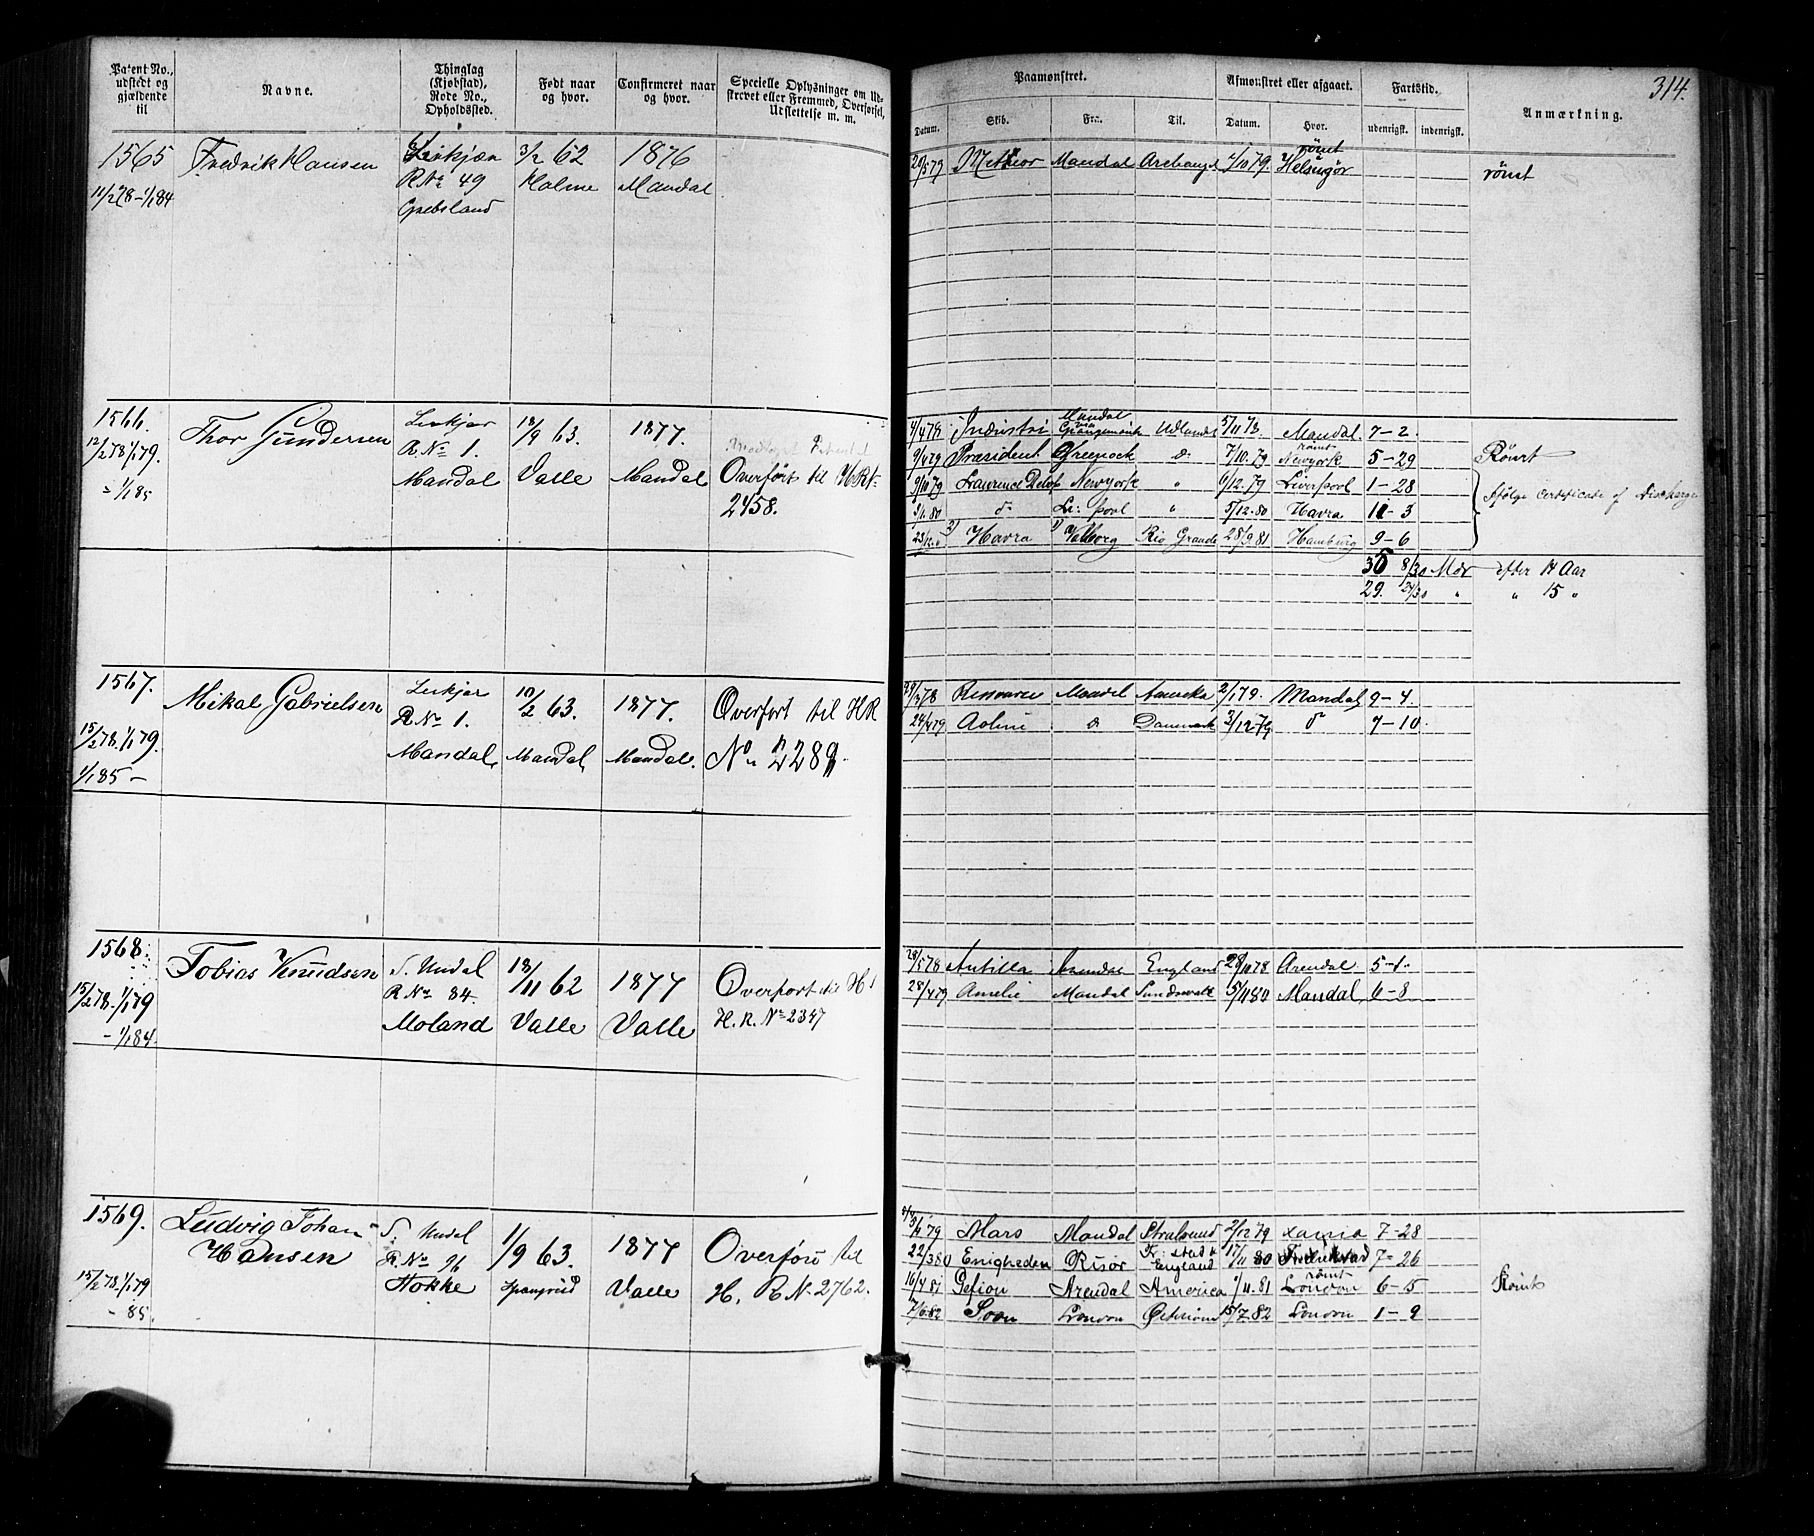 314.
Patent No., udstedt og gjældende til
Navne.
Thinglag (Kjøbstad), Rode No., Opholdssted.
Født naar og hvor.
Confirmeret naar og hvor.
Specielle Oplysninger om Udskrevet eller Fremmed, Overførsel, Udslettelse m. m.
Paamønstret.
Datum.
Skib.
Fra.
Til.
Afmønstret eller afgaaet.
Datum.
Hvor.
Fartstid.
udenrigsk.
indenrigsk.
Anmærkning.
1565 Fredrik Hansen 3/2 62 1876
R No 49 Holme Mandal
11/2 78 - 1/1 84
Mandal 7/10 79. rømt Helsingør rømt
1566. Thor Gundersen R. No 1. Mandal 18/9 63. Valle 1877. Mandal
12/2 78 1/1 79.
= 1/1 85
Overført til
2458.
4/4 78 Industri Mandal Udlandet 5/11 78. Mandal 7-2
9/4 79 Præsident Greenock 7/10. 79 rømt Newyork 5-29 Rømt
9/10 79 Newyork " 6/12. 79 Liverpool 1-28
Certificate of Discharge
5/12. 80 Havra 11-3
Havra Rio Grande 28/9. 81 Hamburg 9-6
8/30 Mdr efter 14 Aar
29. " " 15 "
1567. Mikal Gabrielsen R No 1. Mandal 10/2 63. Mandal 1877. Mandal.
15/2 78. 1/1 79.
1/1 85 -
Overført til HR
No 2289.
Mandal Amerika 2/1 79. Mandal 9-4
24/4 79 Danmark 3/12 79 7-10
1568. Tobias Knudsen S. Undal R No 84. Moland 18/11 62 Valle 1877 Valle
15/2 78. 1/1 79
- 1/1 84.
Overført til
H. R. No 2347
29/5 78 England Arendal
28/4 79 Amelie Mandal Sundsvall 5/1 80 Mandal 6-8
1569. Ludvig Johan Hansen S. Undal R. No 96 1/9 63. 1877 Valle
15/2 78. 1/1 79
- 85.
Overført til
H. R No 2762.
Mars Mandal Stralsund 2/12 79 7-28
22/3 80 Enigheden Risør England 17/11 80 7-26
16/4 81 Gefion Arendal America 1/11. 81 rømt London 6-15 Rømt
7/6. 82 London 15/7 82 London 1-9